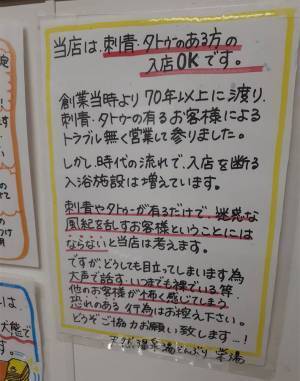 当店は、刺青・タトゥーのある方の
入店OKです。
創業当時より70年以上に渡り、
刺青・タトゥーの有るお客様による
トラブル無く営業して参りました。
しかし、時代の流れで、入店を断る
入浴施設は増えています。
刺青やタトゥーが有るだけで、迷惑な
風紀を乱すお客様ということには
ならないと当店は考えます。
ですが、どうしても目立ってしまいます為
大声で話す・いつまでも裸でいる等、
他のお客様が怖く感じてしまう
恐れのある行為はお控え下さい。
どうぞご協力お願い致します…!
天然温泉湯どんぶり栄湯